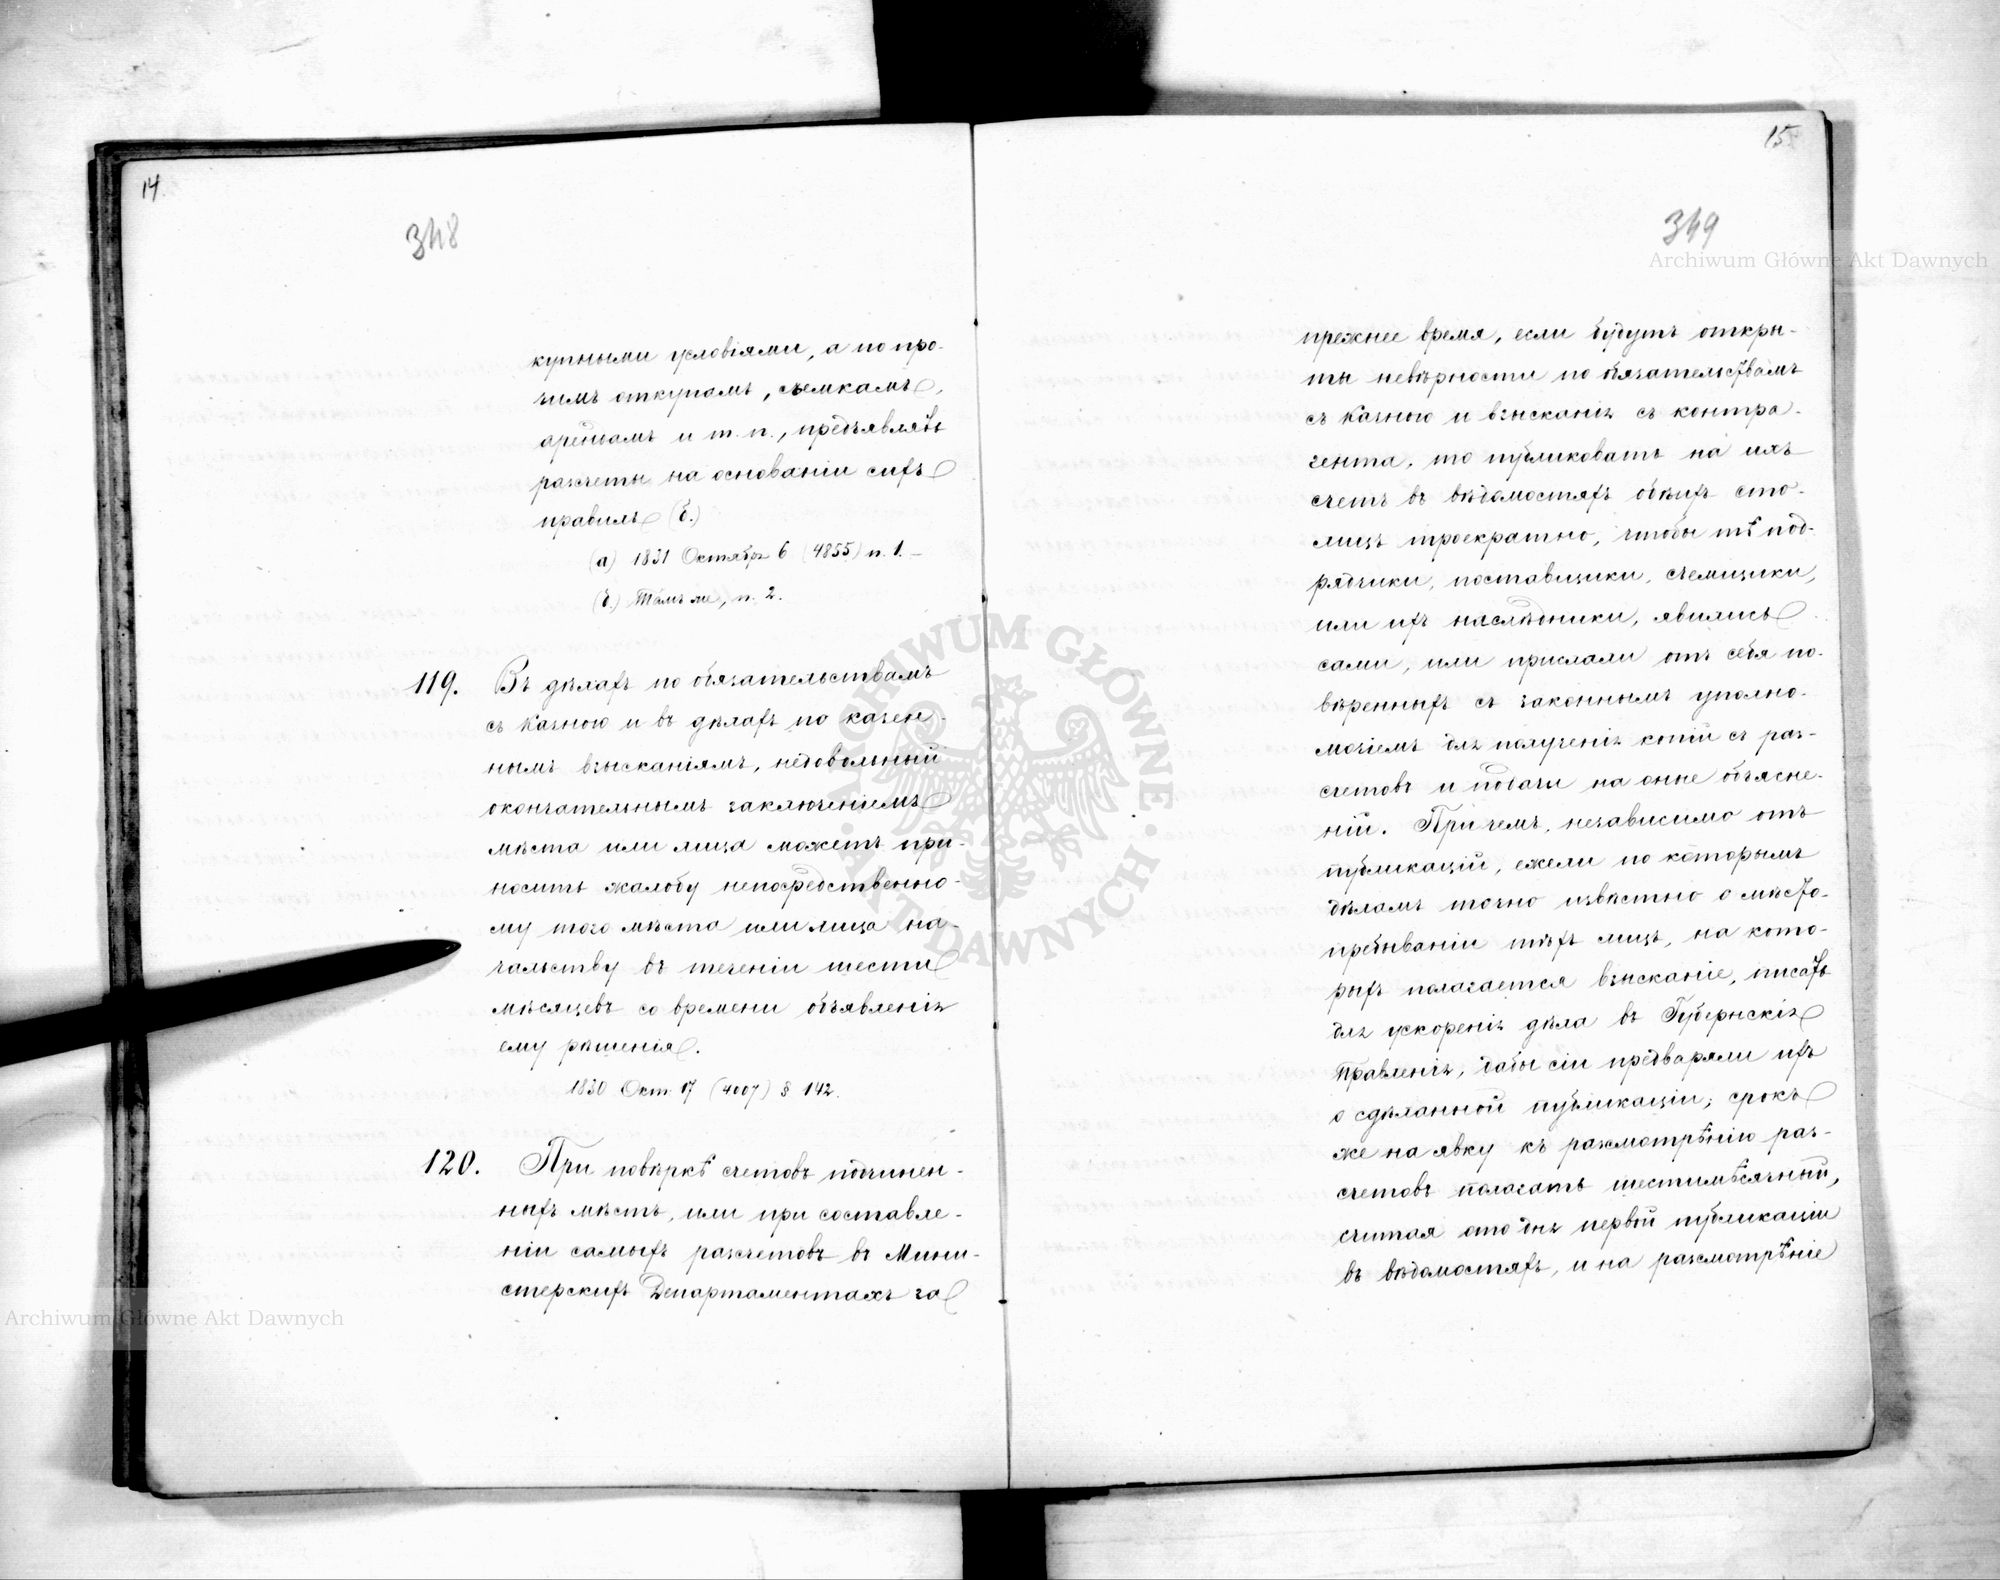 14.
348
купными условіями, а по про-
чимъ откупамъ, съемкамъ,
арендамъ и т. п., предъявлять
разчеты на основаніи сихъ
правилъ (б.)
(а) 1831 Октября 6 (4855) п. 1. –
(б.) Тамъ же, п. 2.
119. Въ дѣлахъ по обязательствамъ
съ казною и въ дѣлахъ по казен-
нымъ взысканіямъ, недовольный
окончательнымъ заключеніемъ
мѣста или лица можетъ при-
носить жалобу непосредственно-
му того мѣста или лица на-
чальству въ теченіи шести
мѣсяцевъ со времени объявленія
ему рѣшенія.
1830 Окт 17 (4007) § 142.
120. При повѣркѣ счетовъ подчинен-
ныхъ мѣстъ, или при составле-
ніи самыхъ разчетовъ въ Мини-
стерскихъ Департаментахъ за
15
349
прежнее время, если будутъ откры-
ты невѣрности по обязательствамъ
съ казною и взысканія съ контра-
гента, то публиковать на ихъ
счетъ въ вѣдомостяхъ обѣихъ сто-
лицъ троекратно, чтобы тѣ под-
рядчики, поставщики, съемщики,
или ихъ наслѣдники, явились
сами, или прислали отъ себя по-
вѣренныхъ съ законнымъ уполно-
мочіемъ для полученія копій съ раз-
счетовъ и подачи на оные объясне-
ній. Причемъ, независимо отъ
публикацій, ежели по которымъ
дѣламъ точно извѣстно о мѣсто-
пребываніи тѣхъ лицъ, на кото-
рыхъ полагается взысканіе, писать
для ускоренія дѣла въ Губернскія
Правленія, дабы сіи предваряли ихъ
о сдѣланной публикаціи; срокъ
же на явку къ разсмотрѣнію раз-
счетовъ полагать шестимѣсячный,
считая ото дня первой публикаціи
въ вѣдомостяхъ, и на разсмотрѣніе
Archiwum Główne Akt Dawnych
Archiwum Główne Akt Dawnych
ARCHIWUM GŁÓWNE · AKT DAWNYCH ·